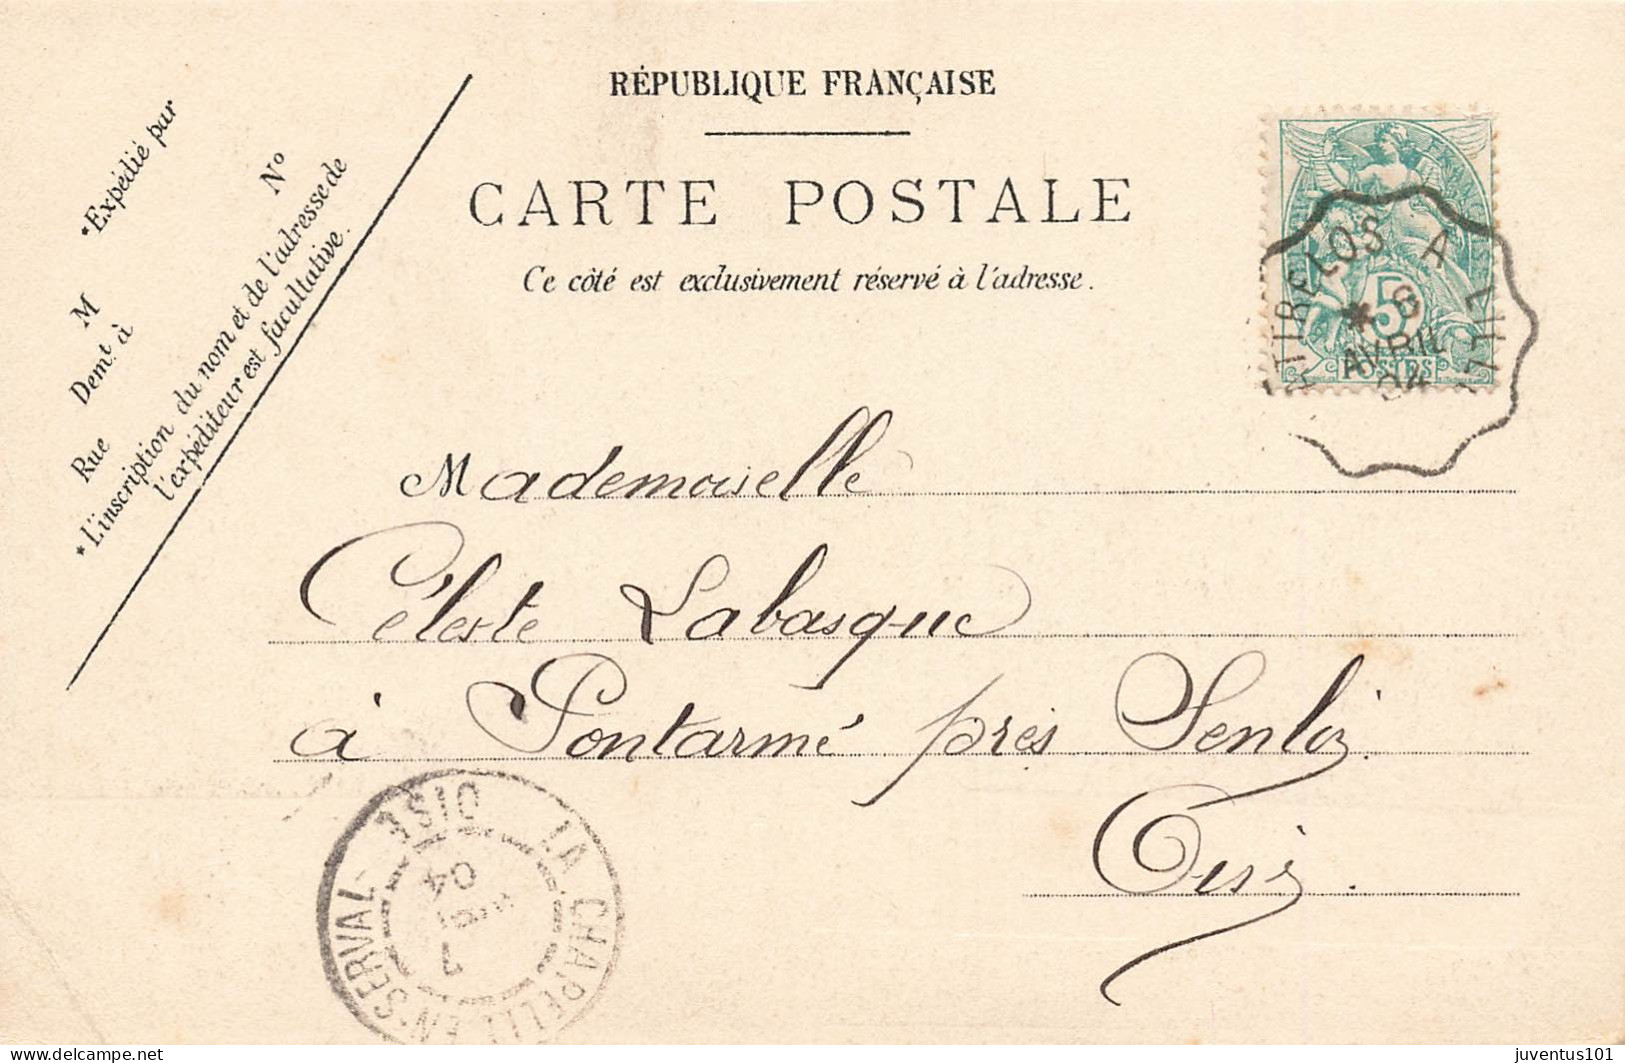 RÉPUBLIQUE FRANÇAISE
CARTE POSTALE
Ce côté est exclusivement réservé à l'adresse.
*Expédié par
M
Demt. à
Rue
No
*L'inscription du nom et de l'adresse de
l'expéditeur est facultative.
5
POSTES
A LILLE
AVRIL
04
Mademoiselle
Céleste Labasque
à Pontarmé près Senlis.
Oise.
LA CHAPELLE EN-SERVAL
OISE
7
04
delcampe.net
juventus101